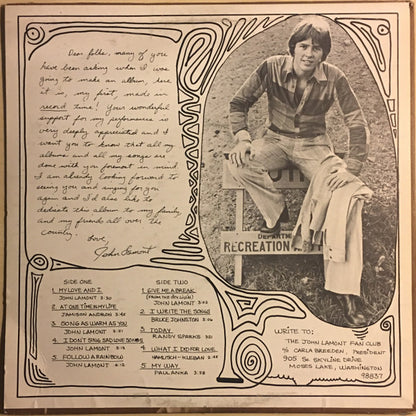 Dear folks, many of you
have been asking when I was
going to make an album, here
it is, my first, made in
record time! Your wonderful
support for my performances is
very deeply appreciated and I
want you to know that all my
albums and all my songs are
done with you foremost in mind.
I am already looking forward to
seeing you and singing for you
again and I'd also like to
dedicate the album to my family
and my friends all over the
country.
Love,
John Lamont
SIDE ONE
1. MY LOVE AND I
JOHN LAMONT 3:30
2. AT ONE TIME IN MY LIFE
JAMISON ANDRON
3. SONG AS WARM AS YOU
JOHN LAMONT
4. I DON'T SING SAD LOVE SONGS
JOHN LAMONT
5. FOLLOW A RAINBOW
JOHN LAMONT
SIDE TWO
1. GIVE ME A BREAK
JOHN LAMONT
2. I WRITE THE SONGS
BRUCE JOHNSTON
3. TODAY
RANDY SPARKS
4. WHAT I DID FOR LOVE
HAMLISCH - KLEBAN
5. MY WAY
PAUL ANKA
DEPARTM
RECREATION
WRITE TO:
THE JOHN LAMONT FAN CLUB
% CARLA BREEDEN, PRESIDENT
905 So. SKYLINE DRIVE
MOSES LAKE, WASHINGTON
98837